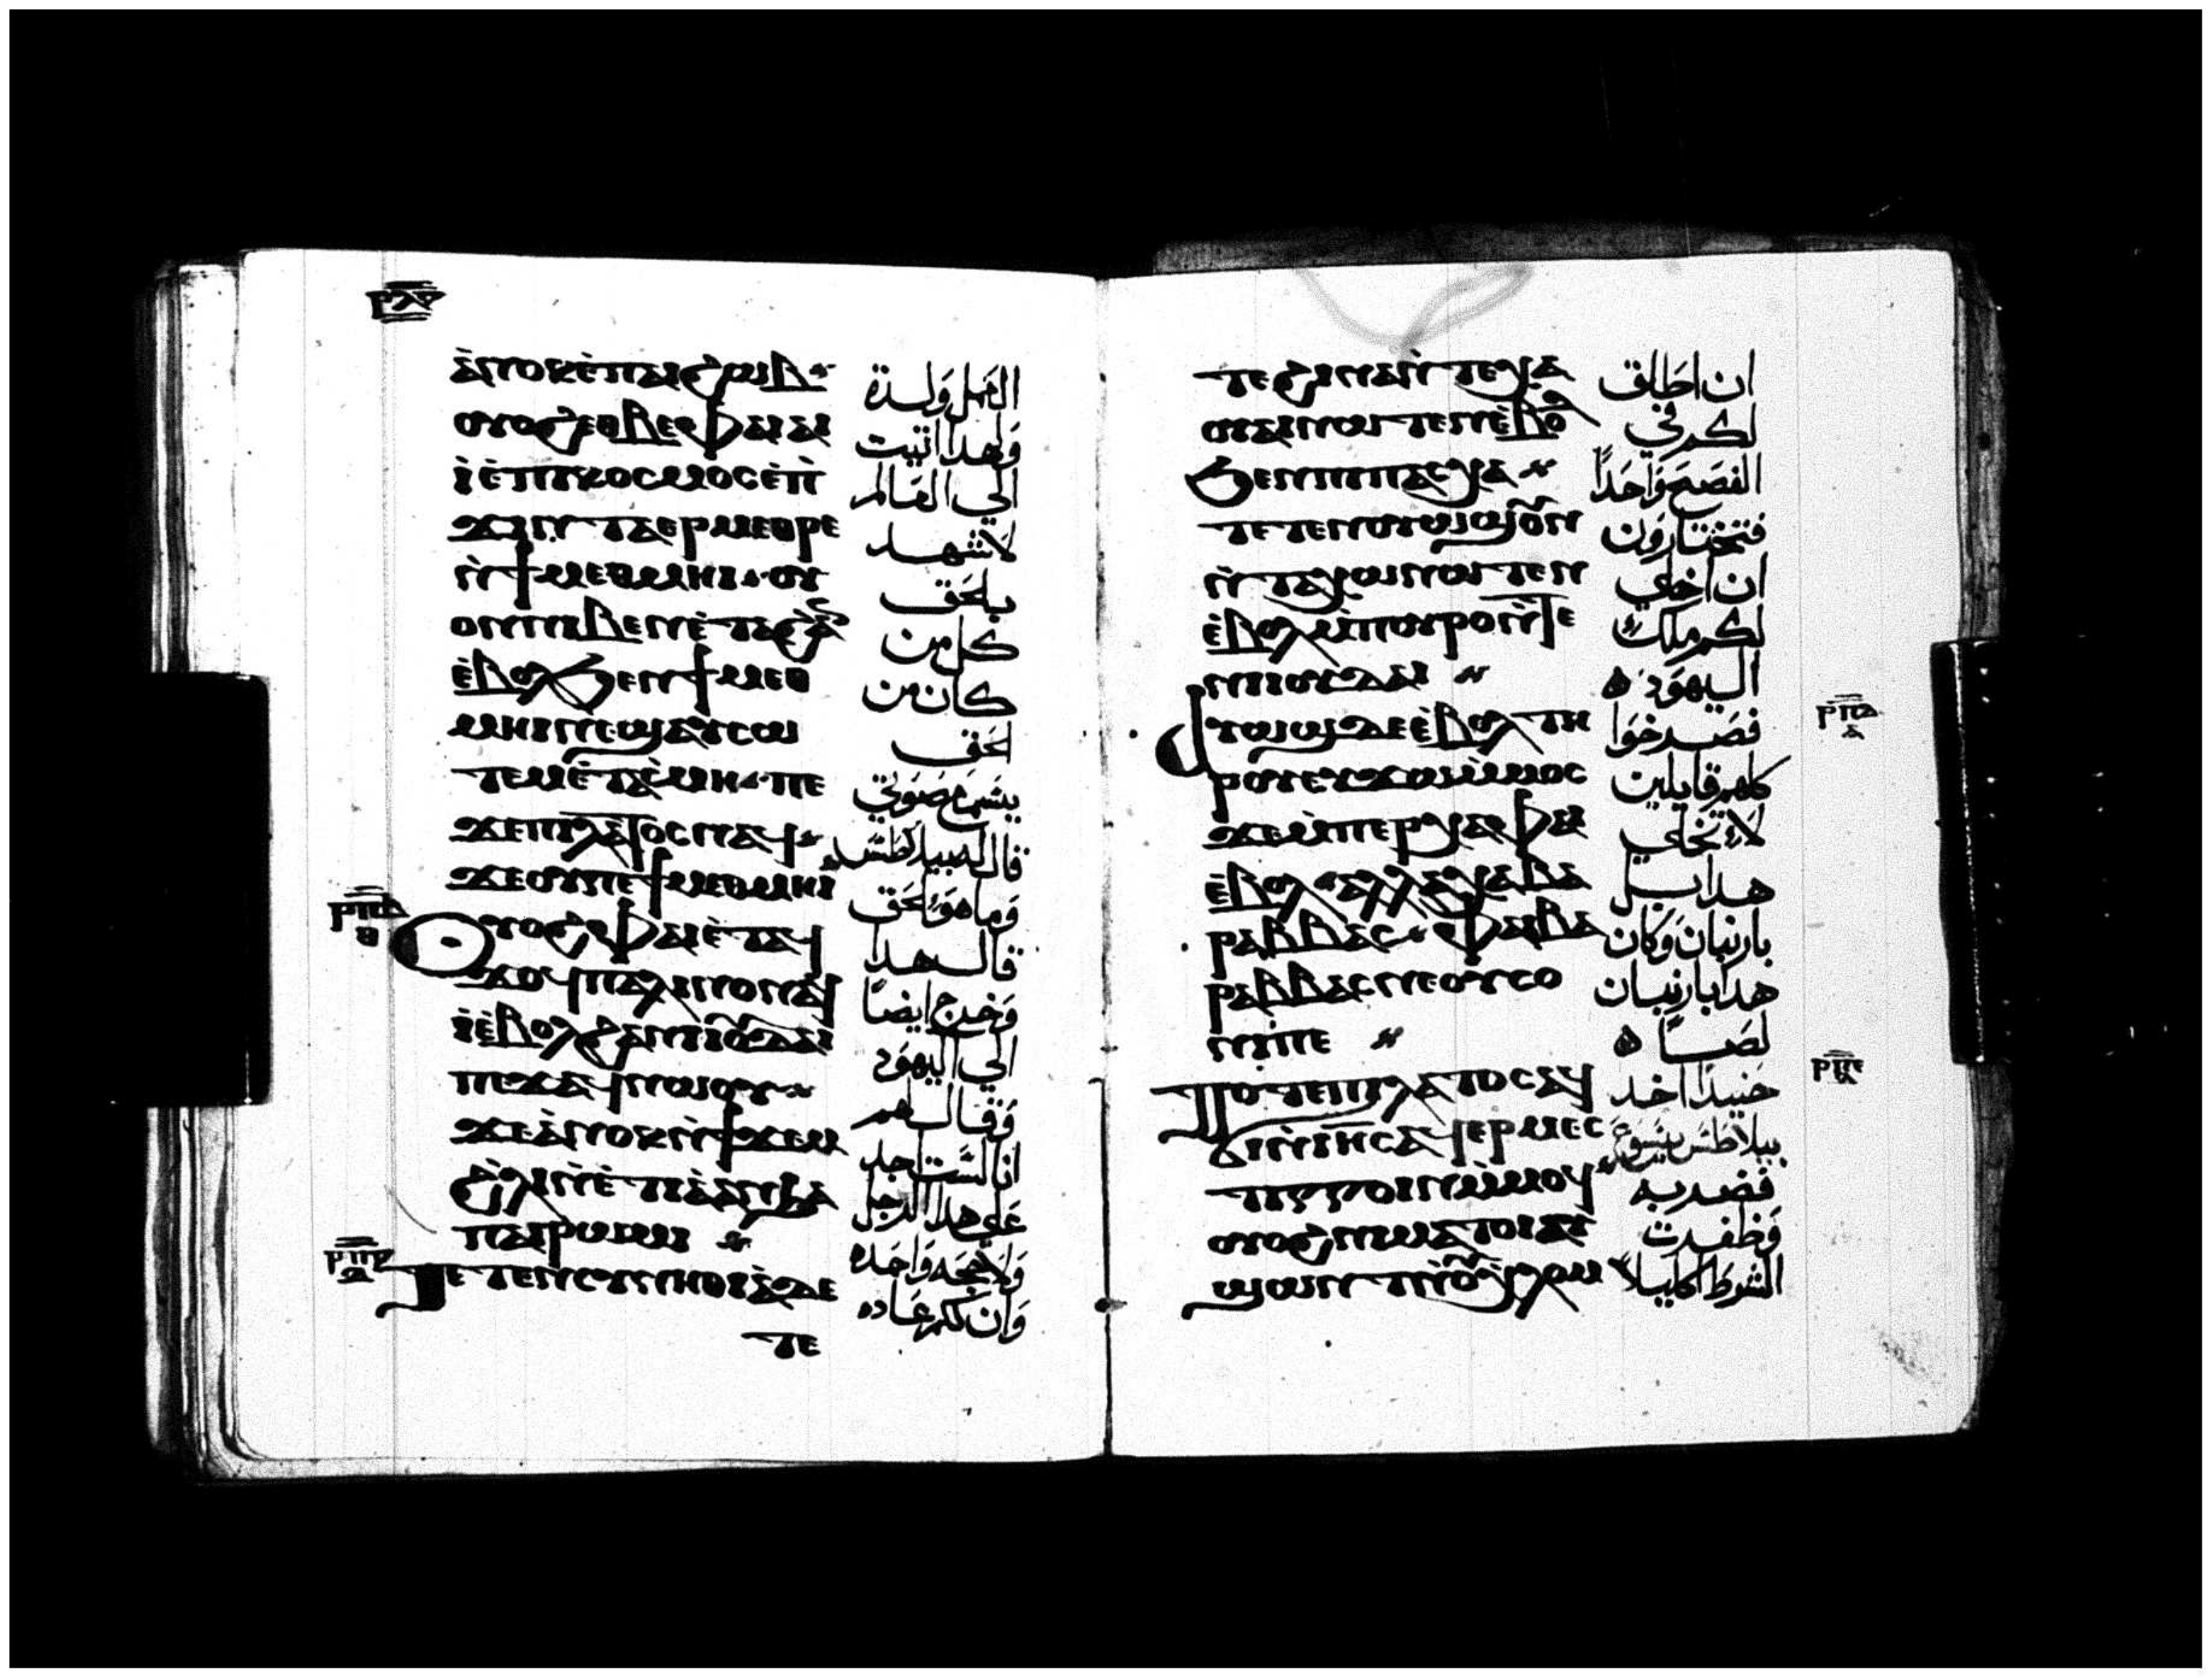 ⲣⲗⲋ
ⲁ̀ⲛⲟⲕ ⲉ̀ⲡⲁⲓϩⲱⲃ
ⲟⲩⲟϩ ⲉⲑⲃⲉ ⲫⲁⲓ ⲁⲓ
ⲓ̀ ⲉ̀ⲡⲓⲕⲟⲥⲙⲟⲥ ⲉ̀ⲡ̀
ϫⲓⲛⲧⲁⲉⲣⲙⲉⲑⲣⲉ
ⲛ̀ϯⲙⲉⲑⲙⲏⲓ ⲟⲩ
ⲟⲛ ⲛⲓⲃⲉⲛ ⲉ̀ⲧⲉ
ⲉ̀ⲃⲟⲗ ϧⲉⲛ ϯⲙⲉⲑ
ⲙⲏⲓ ⲛⲉ ϣⲁⲩⲥⲱ
ⲧⲉⲙ ⲉ̀ⲧⲁⲥ̀ⲙⲏ ⲡⲉ
ϫⲉ ⲡⲓⲗⲁⲧⲟⲥ ⲛⲁϥ
ϫⲉ ⲟⲩ ⲡⲉ ϯⲙⲉⲑⲙⲏⲓ
ⲟⲩⲟϩ ⲫⲁⲓ ⲉ̀ⲧⲁϥ
ϫⲟϥ ⲡⲁⲗⲓⲛ ⲟⲛ ⲁϥ
ⲓ̀ ⲉ̀ⲃⲟⲗ ϩⲁ ⲛⲓⲓⲟⲩⲇⲁⲓ
ⲡⲉϫⲁϥ ⲛⲱⲟⲩ
ϫⲉ ⲁ̀ⲛⲟⲕ ⲛ̀ϯϫⲉⲙ
ϩ̀ⲗⲓ ⲛ̀ⲉ̀ⲧⲓⲁ̀ ⲁⲛ ϧⲁ
ⲡⲁⲓⲣⲱⲙⲓ
ⲧⲉⲧⲉⲛⲥⲩⲛⲏⲑⲓⲁ̀ ⲇⲉ
ⲧⲉ
العمل ولدة
ولهدا اتيت
الي العالم
لاشهد
بالحق
كل من
كان من
الحق
يسمع صوتي
قال له بيلاطس
وما هو الحق
قال هدا
وخرج ايضًا
الي اليهود
وقال لهم
انا لست اجد
علي هدا الرجل
ولا حجه واحده
وان لكم عاده
ⲧⲉ ϩⲓⲛⲁ ⲛ̀ⲧⲉⲭⲁ
ⲟⲩⲁⲓ ⲛⲱⲧⲉⲛ ⲉ̀ⲃⲟⲗ
ϧⲉⲛ ⲡⲓⲡⲁⲥⲭⲁ
ⲧⲉⲧⲉⲛⲟⲩⲱϣ ⲟⲩⲛ
ⲛ̀ⲧⲁⲭⲱ ⲛⲱⲧⲉⲛ
ⲉ̀ⲃⲟⲗ ⲙ̀ⲡⲟⲩⲣⲟ ⲛ̀ⲧⲉ
ⲛⲓⲓⲟⲩⲇⲁⲓ
ⲁⲩⲱϣ ⲇⲉ ⲉ̀ⲃⲟⲗ ⲧⲏ
ⲣⲟⲩ ⲉⲩϫⲱ ⲙ̀ⲙⲟⲥ
ϫⲉ ⲙ̀ⲡⲉⲣⲭⲁ ⲫⲁⲓ
ⲉ̀ⲃⲟⲗ ⲁⲗⲗⲁ ⲭⲁ ⲃⲁ
ⲣⲁⲃⲃⲁⲥ ⲫⲁⲓ ⲃⲁ
ⲣⲁⲃⲃⲁⲥ ⲛⲉ ⲟⲩⲥⲟ
ⲛⲓ ⲡⲉ
ⲧⲟⲧⲉ ⲡⲓⲗⲁⲧⲟⲥ ⲁϥ
ϭⲓ ⲛ̀ⲓⲏⲥ ⲁϥⲉⲣⲙⲉⲥ
ⲧⲓⲅⲅⲟⲓⲛ ⲙ̀ⲙⲟϥ
ⲟⲩⲟϩ ⲛⲓⲙⲁⲧⲟⲓ ⲁⲩ
ϣⲱⲛⲧ ⲛ̀ⲟⲩⲭ̀ⲗⲟⲙ
ان اطلق
لكم في
الفصح واحدًا
فتختارون
ان اخلي
لكم ملك
اليهود
فصرخوا
كلهم قايلين
لا تخلي
هدا بل
بارنبان وكان
هدا بارنبان
لصًا
حنيدا اخد
بيلاطس يسوع
فضربه
وظفرت
الشرط اكليلًا